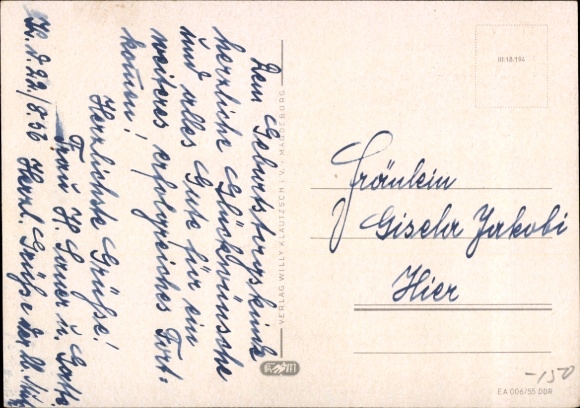 Dem Geburtstagskinde
herzliche Glückwünsche
und alles Gute für ein
weiteres erfolgreiches Fort-
kommen!
Herzlichste Grüße!
Frau H.
8.56 Herzl. Grüße
VERLAG WILLY KLAUTZSCH I.V. · MAGDEBURG
III 18 194
Fräulein
Gisela Jakobi
Hier
-150
EA 006/55 DDR